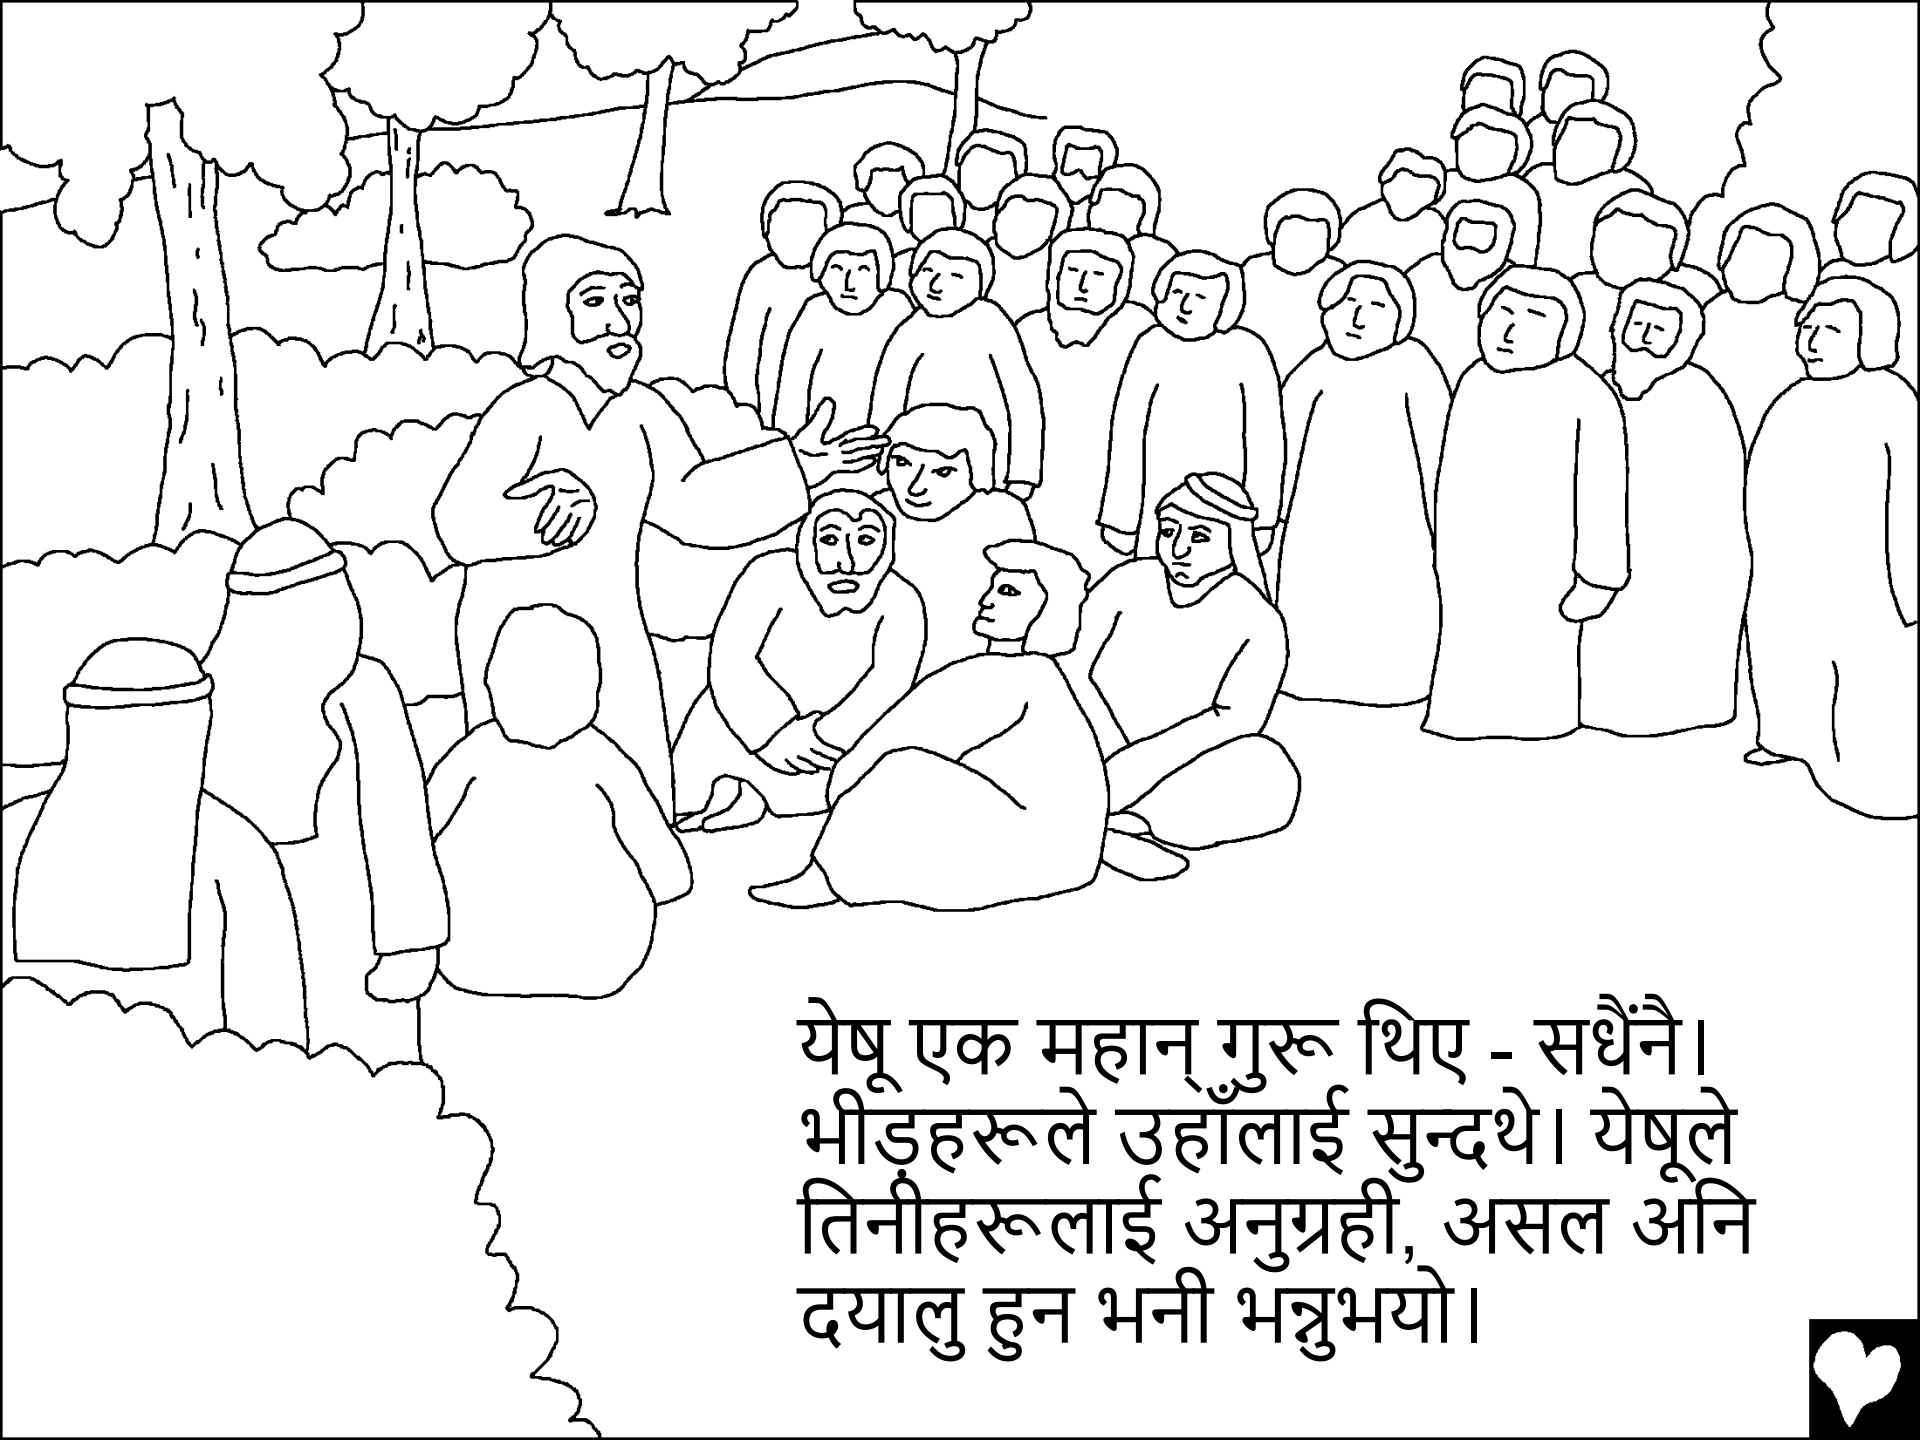 येषू एक महान् गुरू थिए - सधैंनै।
भीड़हरूले उहाँलाई सुन्दथे। येषूले
तिनीहरूलाई अनुग्रही, असल अनि
दयालु हुन भनी भन्नुभयो।